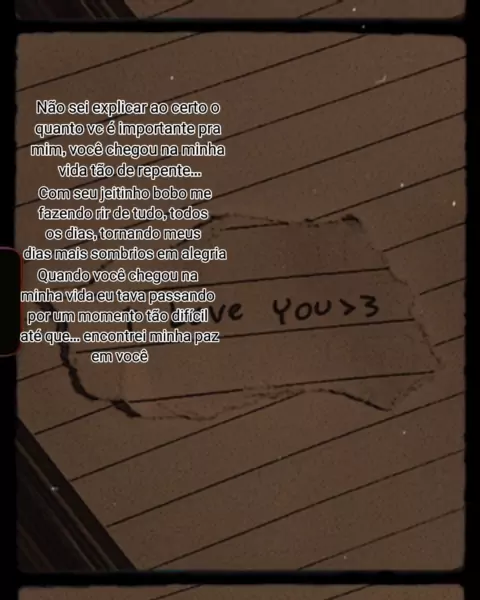 Não sei explicar ao certo o
quanto vc é importante pra
mim, você chegou na minha
vida tão de repente...
Com seu jeitinho bobo me
fazendo rir de tudo, todos
os dias, tornando meus
dias mais sombrios em alegria
Quando você chegou na
minha vida eu tava passando
por um momento tão difícil
até que... encontrei minha paz
em você
I Love You>3